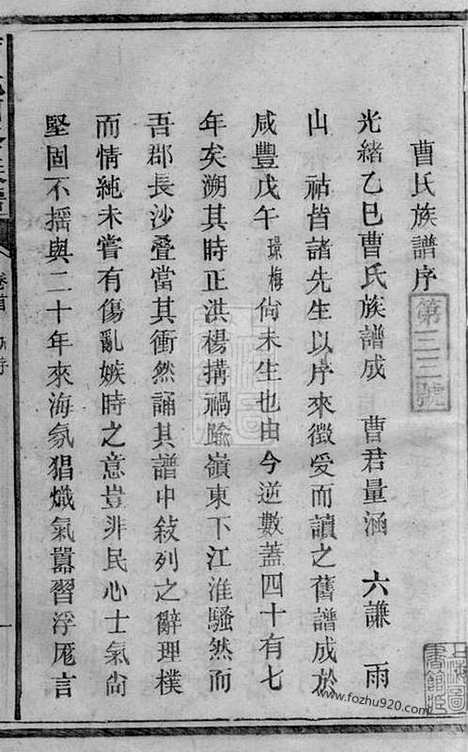 曹氏族譜序
第三三號
光緒乙巳曹氏族譜成　曹君量涵　六謙　雨
山　祜皆諸先生以序來徵爰而讀之舊譜成於
咸豐戊午璟梅尙未生也由今逆數蓋四十有七
年矣溯其時正洪楊搆禍踰嶺東下江淮騷然而
吾郡長沙叠當其衝然誦其譜中敍列之辭理樸
而情純未嘗有傷亂嫉時之意豈非民心士氣尙
堅固不搖與二十年來海氛猖熾氣囂習浮厖言
卷首
上海圖
書館藏
www.fozhu920.com